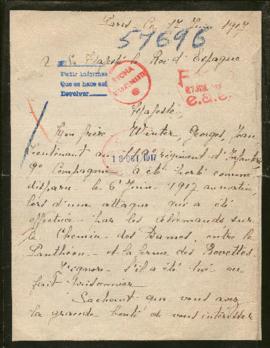 Paris, le 17 Juin 1917
57696
A S. Majesté le Roi d'Espagne
Pedir informes
Que se hace así
Devolver
FICHA
Majesté,
Mon frère Winter, Georges, Jean
lieutenant au Régiment d'Infanterie
Compagnie a été porté comme
disparu le 6 Juin 1917 au matin
lors d'une attaque qui a été
effectuée par les allemands sur
le Chemin des Dames, entre le
Panthéon et la ferme des Bovettes
s'il a été lui
fait prisonnier.
Sachant que vous avez
la grande bonté de vous intéresser